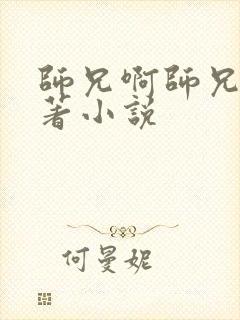 師兄啊師兄
著小說
何曼妮